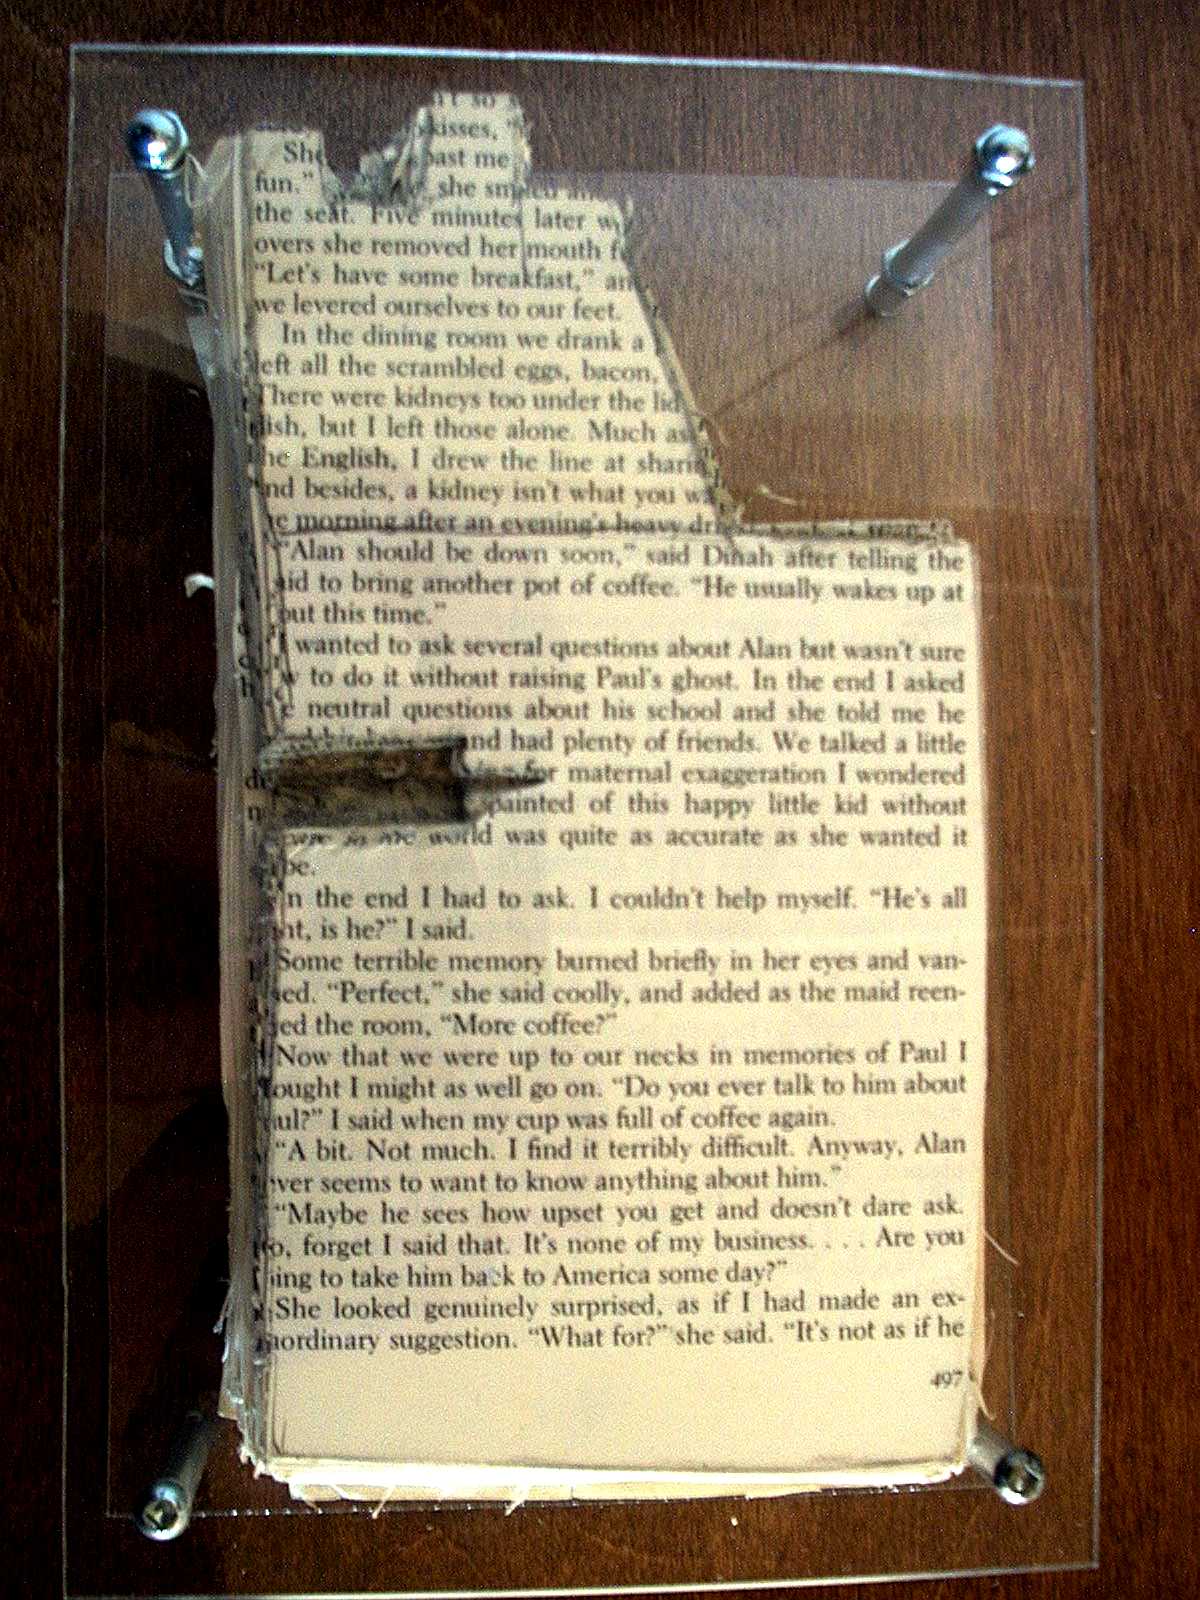 kisses, "
She past me
fun." she smiled
the seat. Five minutes later
overs she removed her mouth
"Let's have some breakfast,"
we levered ourselves to our feet.
In the dining room we drank a
left all the scrambled eggs, bacon,
There were kidneys too under the lid
dish, but I left those alone. Much as
he English, I drew the line at
nd besides, a kidney isn't what you
morning after an evening's heavy
"Alan should be down soon," said Dinah after telling the
aid to bring another pot of coffee. "He usually wakes up at
out this time."
I wanted to ask several questions about Alan but wasn't sure
w to do it without raising Paul's ghost. In the end I asked
neutral questions about his school and she told me he
and had plenty of friends. We talked a little
for maternal exaggeration I wondered
painted of this happy little kid without
world was quite as accurate as she wanted it
be.
In the end I had to ask. I couldn't help myself. "He's all
ht, is he?" I said.
Some terrible memory burned briefly in her eyes and van-
ed. "Perfect," she said coolly, and added as the maid reen-
ed the room, "More coffee?"
Now that we were up to our necks in memories of Paul I
ought I might as well go on. "Do you ever talk to him about
ul?" I said when my cup was full of coffee again.
"A bit. Not much. I find it terribly difficult. Anyway, Alan
ver seems to want to know anything about him."
"Maybe he sees how upset you get and doesn't dare ask.
o, forget I said that. It's none of my business. . . . Are you
ing to take him back to America some day?"
She looked genuinely surprised, as if I had made an ex-
aordinary suggestion. "What for?" she said. "It's not as if he
497